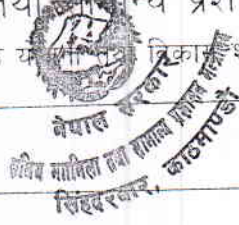 तथा
विकास
नेपाल सरकार
संघीय मामिला तथा सामान्य प्रशासन मन्त्रालय
सिंहदरबार, काठमाण्डौ